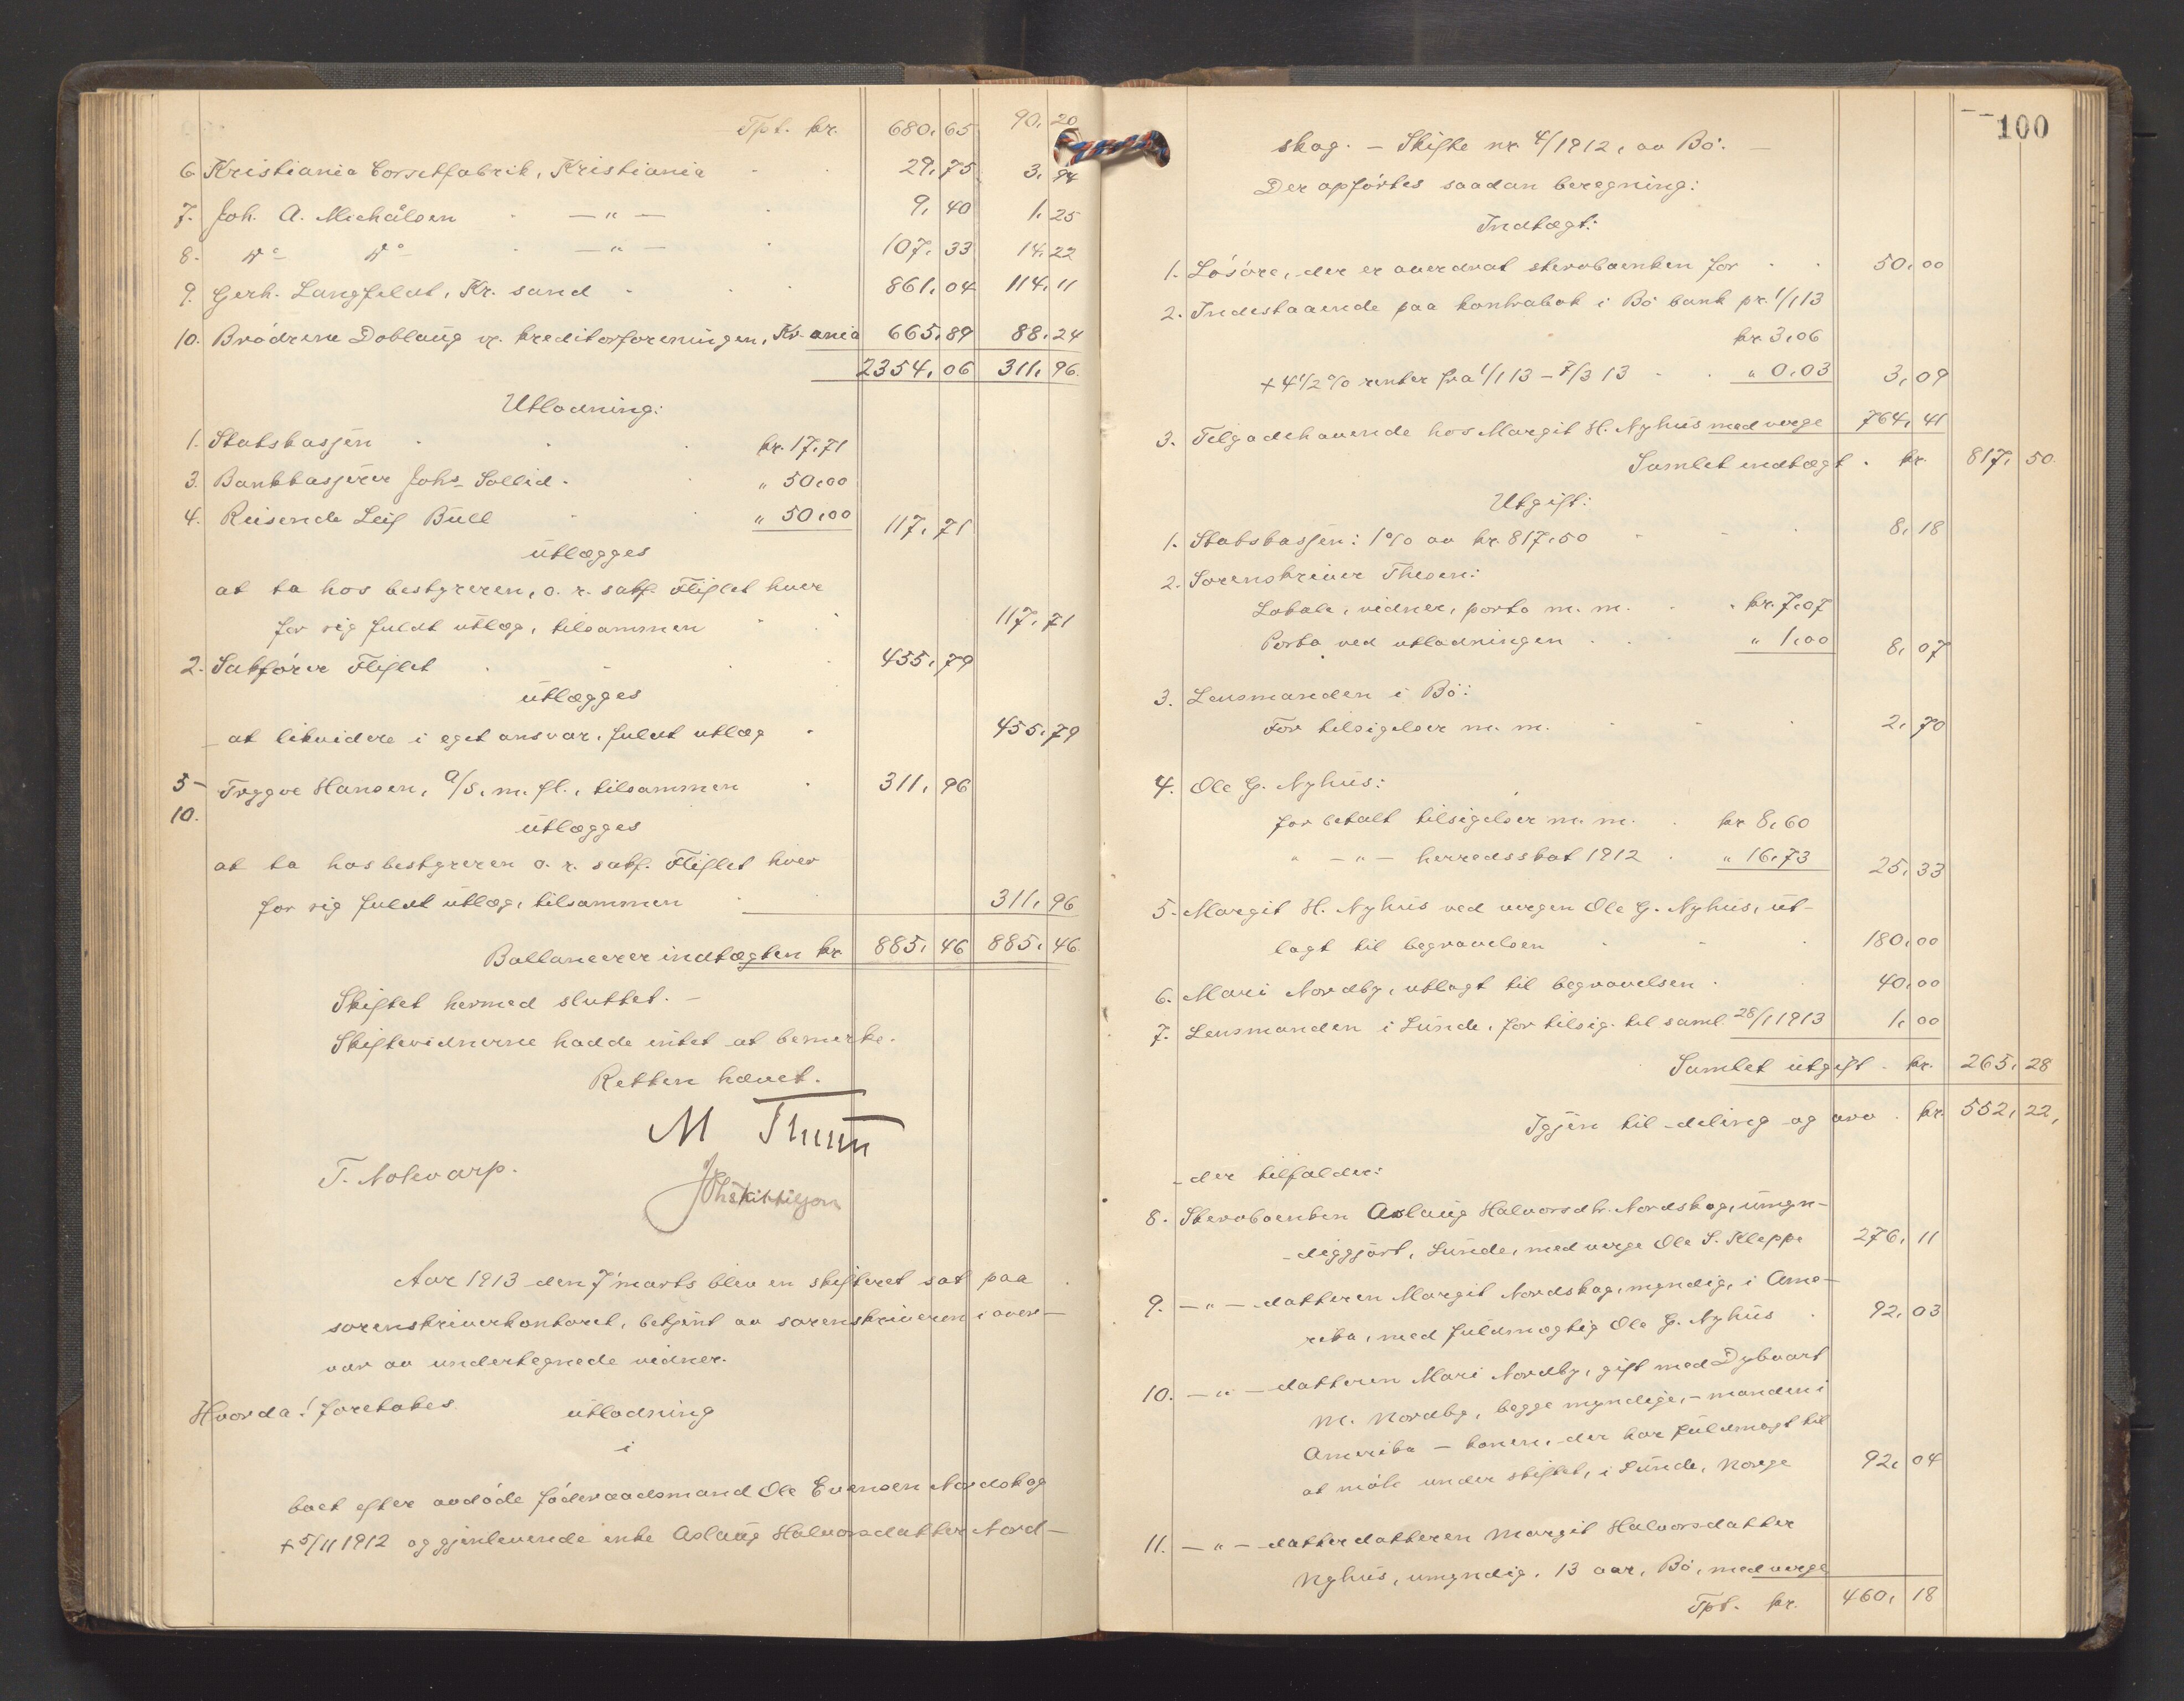 Tpt. kr. 680,65 90,20
6. Kristiania Corsetfabrik, Kristiania 29,75 3,94
7. Joh. A. Michälsen — " — 9,40 1,25
8. Do Do — " — 107,33 14,22
9. Gerh. Langfeldt, Kr. sand 861,04 114,11
10. Brødrene Doblaug v. kreditorforeningen, Kr. ania 665,89 88,24
2354,06 311,96
Utlodning:
1. Statskassen kr. 17,71
3. Bankkasserer Johs. Sollid " 50,00
4. Reisende Leif Bull " 50,00 117,71
utlægges
at ta hos bestyreren, o. r. sakf. Fliflet hver
for sig fuldt utlæg, tilsammen 117,71
2. Sakfører Fliflet 455,79
utlægges
at likvidere i eget ansvar, fuldt utlæg 455,79
5– Trygve Hansen, A/S, m. fl., tilsammen 311,96
10.
utlægges
at ta hos bestyreren o. r. sakf. Fliflet hver
for sig fuldt utlæg, tilsammen 311,96
Ballancerer indtægten kr. 885,46 885,46
Skiftet hermed sluttet. –
Skiftevidnerne hadde intet at bemerke.
Retten hævet.
M Thesen
T. Notevarp. Joh Kittilsen
Aar 1913 den 7 marts blev en skifteret sat paa
sorenskriverkontoret, betjent av sorenskriveren i over-
vær av undertegnede vidner.
Hvorda! foretokes utlodning
i
boet efter avdøde føderaadsmand Ole Evensen Nordskog
+ 5/11 1912 og gjenlevende enke Aslaug Halvorsdatter Nord-
100
skog. – Skifte nr. 4/1912, av Bø. –
Der opførtes saadan beregning:
Indtægt:
1. Løsøre, der er overdrat stervboenken for 50,00
2. Indestaaende paa kontrabok i Bø bank pr. 1/1 13
kr. 3,06
+ 4 1/2 % renter fra 1/1 13 – 7/3 13 " 0,03 3,09
3. Tilgodehavende hos Margit H. Nyhus med verge 764,41
Samlet indtægt. kr. 817,50
Utgift:
1. Statskassen: 1% av kr. 817,50 8,18
2. Sorenskriver Thesen:
Lokale, vidner, porto m. m. kr. 7,07
Porto ved utlodningen " 1,00 8,07
3. Lensmanden i Bø:
For tilsigelser m. m. 2,70
4. Ole G. Nyhus:
for betalt tilsigelser m. m. kr 8,60
" – " – herredsskat 1912 " 16,73 25,33
5. Margit H. Nyhus ved vergen Ole G. Nyhus, ut-
lagt til begravelsen 180,00
6. Mari Nordby, utlagt til begravelsen 40,00
7. Lensmanden i Lunde, for tilsig. til saml. 28/1 1913 1,00
Samlet utgift. kr. 265,28
Igjen til deling og arv. kr. 552,22,
der tilfalder:
8. Stervboenken Aslaug Halvorsdtr. Nordskog, umyn-
diggjort, Lunde, med verge Ole S. Kleppe 276,11
9. – " – datteren Margit Nordskog, myndig, i Ame-
rika, med fuldmægtig Ole G. Nyhus 92,03
10. – " – datteren Mari Nordby, gift med Dybvart
M. Nordby, begge myndige, – manden i
Amerika – konen, der har fuldmagt til
at møte under skiftet, i Lunde, Norge 92,04
11. – " – datterdatteren Margit Halvorsdatter
Nyhus, umyndig, 13 aar, Bø, med verge
Tpt. kr. 460,18